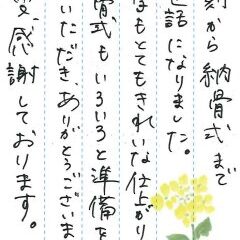 刻から納骨式まで
話になりました。
もとてもきれいな仕上がり
骨式もいろいろと準備を
いただき、ありがとうございま
感謝しております。